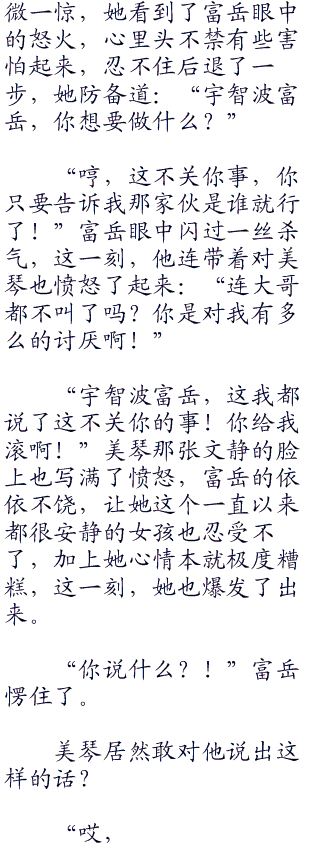 微一惊，她看到了富岳眼中
的怒火，心里头不禁有些害
怕起来，忍不住后退了一
步，她防备道：“宇智波富
岳，你想要做什么？”
“哼，这不关你事，你
只要告诉我那家伙是谁就行
了！”富岳眼中闪过一丝杀
气，这一刻，他连带着对美
琴也愤怒了起来：“连大哥
都不叫了吗？你是对我有多
么的讨厌啊！”
“宇智波富岳，这我都
说了这不关你的事！你给我
滚啊！”美琴那张文静的脸
上也写满了愤怒，富岳的依
依不饶，让她这个一直以来
都很安静的女孩也忍受不
了，加上她心情本就极度糟
糕，这一刻，她也爆发了出
来。
“你说什么？！”富岳
愣住了。
美琴居然敢对他说出这
样的话？
“哎，